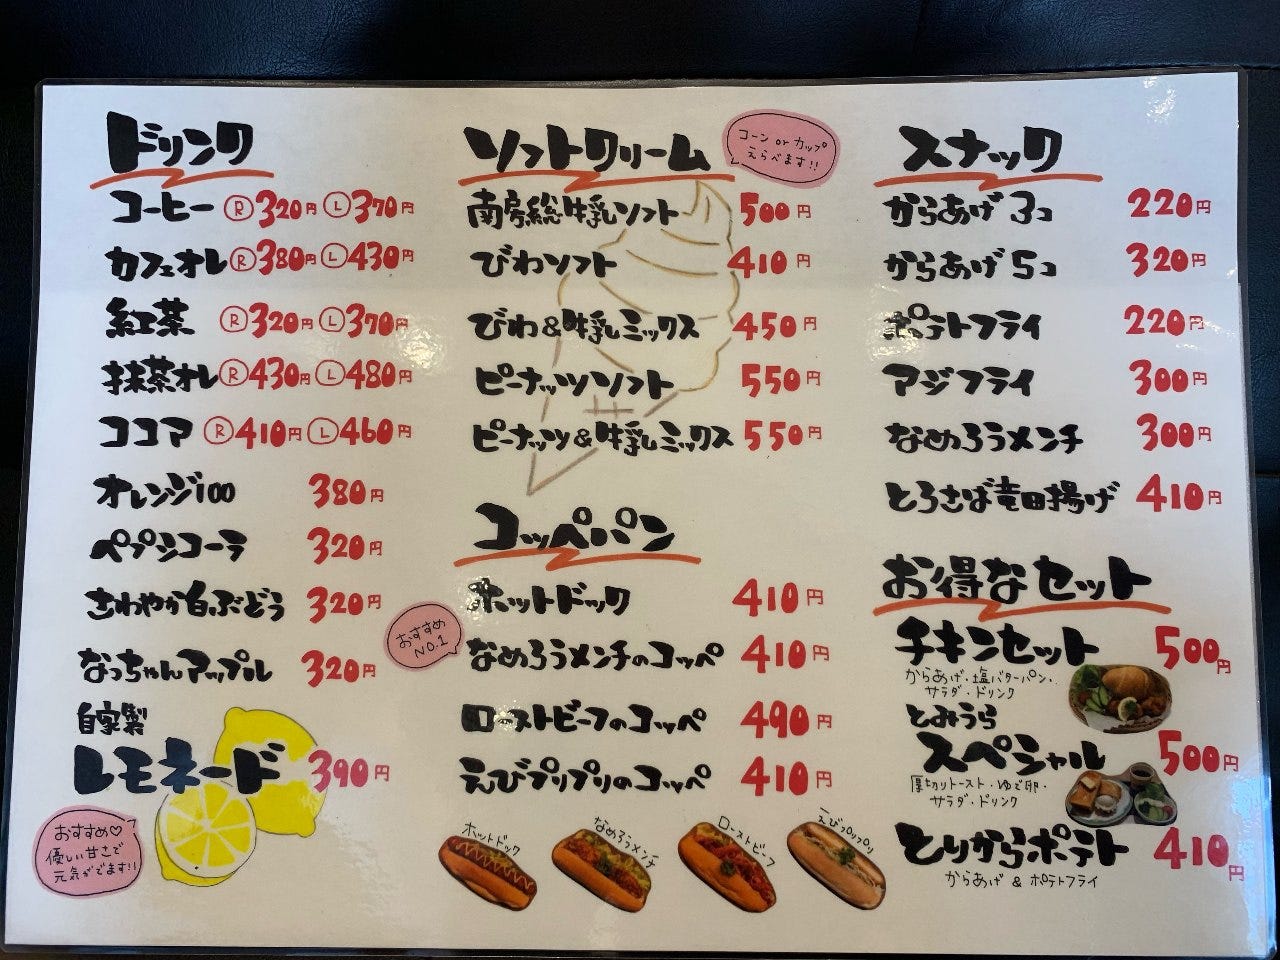 ドリンク
コーヒー Ⓡ320円 Ⓛ370円
カフェオレ Ⓡ380円 Ⓛ430円
紅茶 Ⓡ320円 Ⓛ370円
抹茶オレ Ⓡ430円 Ⓛ480円
ココア Ⓡ410円 Ⓛ460円
オレンジ100 380円
ペプシコーラ 320円
さわやか白ぶどう 320円
なっちゃんアップル 320円
自家製
レモネード 390円
おすすめ♡
優しい甘さで
元気がでます!!
ソフトクリーム
コーン or カップ
えらべます!!
南房総牛乳ソフト 500円
びわソフト 410円
びわ&牛乳ミックス 450円
ピーナッツソフト 550円
ピーナッツ&牛乳ミックス 550円
コッペパン
ホットドック 410円
おすすめ
NO.1
なめろうメンチのコッペ 410円
ローストビーフのコッペ 490円
えびプリプリのコッペ 410円
ホットドック
なめろうメンチ
ローストビーフ
えびプリプリ
スナック
からあげ 3コ 220円
からあげ 5コ 320円
ポテトフライ 220円
アジフライ 300円
なめろうメンチ 300円
とろさば竜田揚げ 410円
お得なセット
チキンセット 500円
からあげ・塩バターパン・
サラダ・ドリンク
とみうら
スペシャル 500円
厚切りトースト・ゆで卵・
サラダ・ドリンク
とりからポテト 410円
からあげ & ポテトフライ